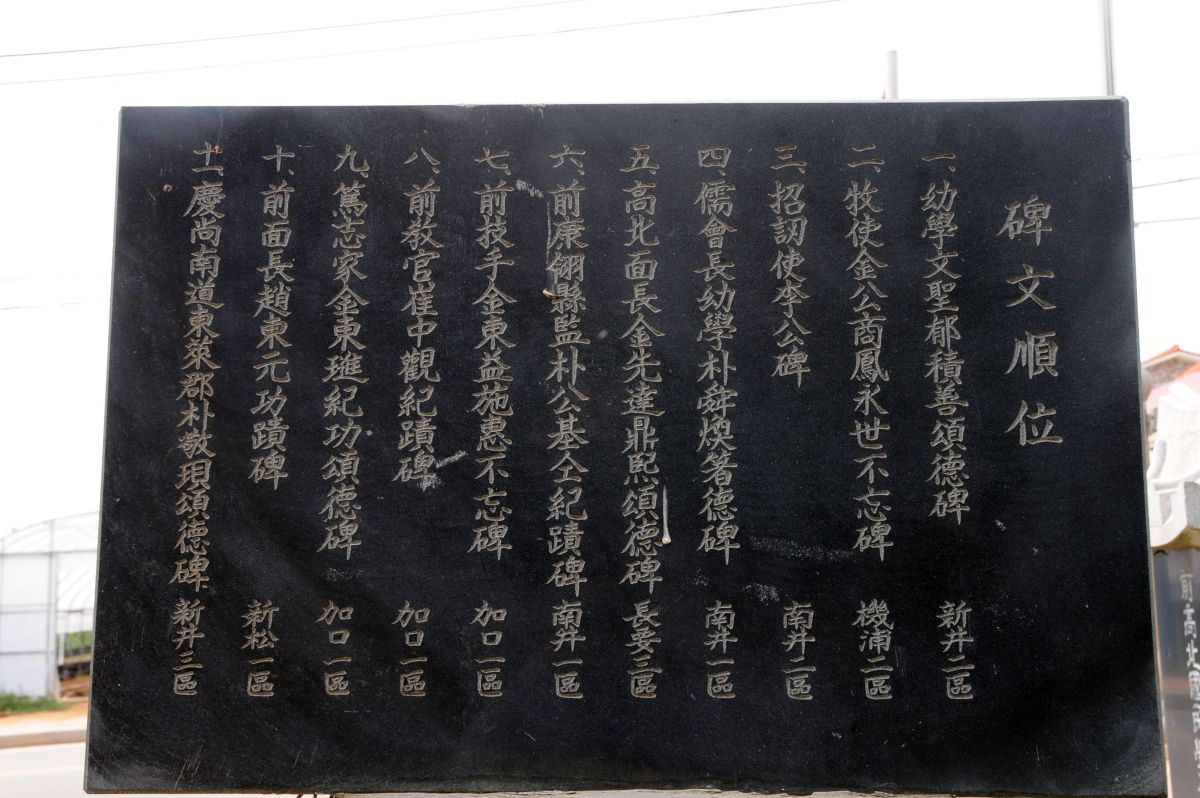 碑文順位
一、幼學文聖郁積善頌德碑 新井二區
二、牧使金公商鳳永世不忘碑 機浦二區
三、招訒使李公碑 南井二區
四、儒會長幼學朴舜煥著德碑 南井一區
五、高北面長金先達鼎熙頌德碑 長要三區
六、前康翎縣監朴公基仝紀蹟碑 南井一區
七、前技手金東益施惠不忘碑 加口一區
八、前教官崔中觀紀蹟碑 加口一區
九、篤志家金東璡紀功頌德碑 加口一區
十、前面長趙東元功蹟碑 新松一區
十一、慶尚南道東萊郡朴敬珼頌德碑 新井三區
前高北